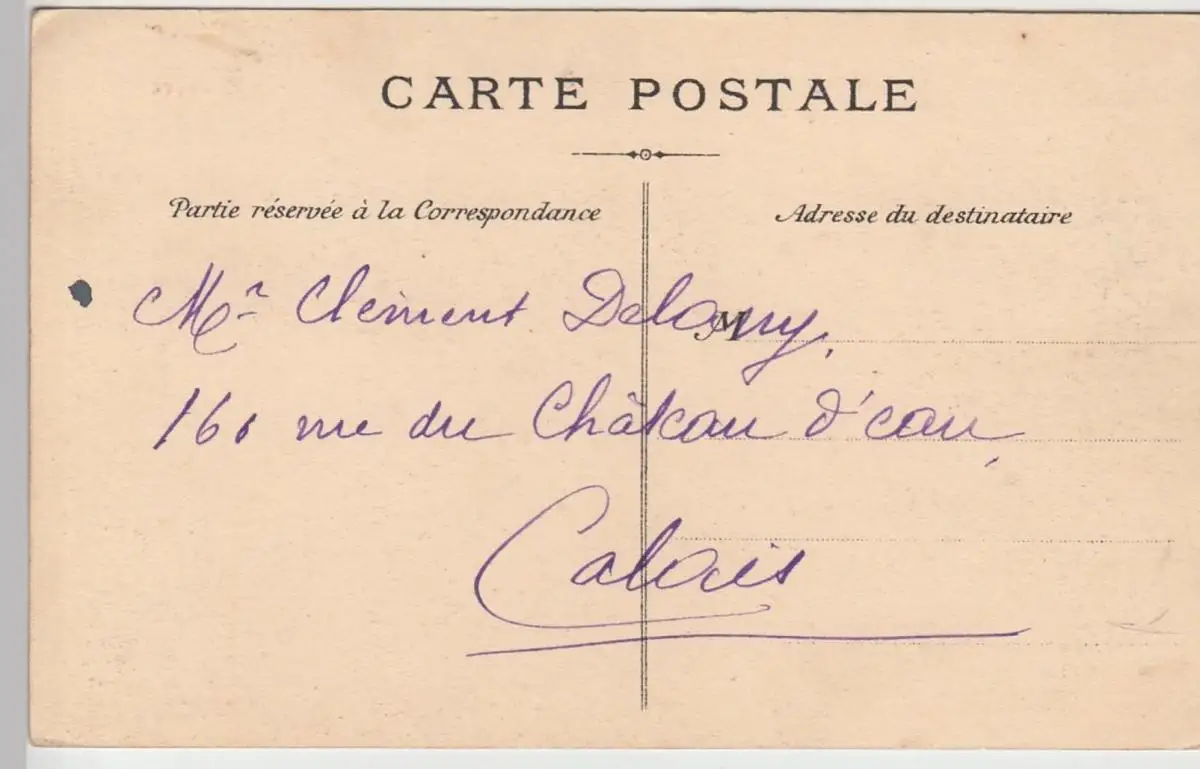 CARTE POSTALE
Partie réservée à la Correspondance
Adresse du destinataire
M
Mr Clément Delanny,
161 rue du Château d'eau,
Calais